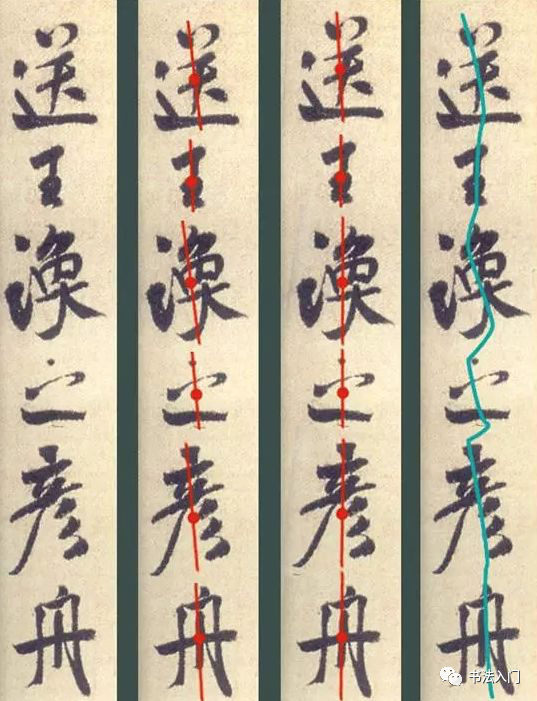 送王渙之彦舟
送王渙之彦舟
送王渙之彦舟
送王渙之彦舟
书法入门